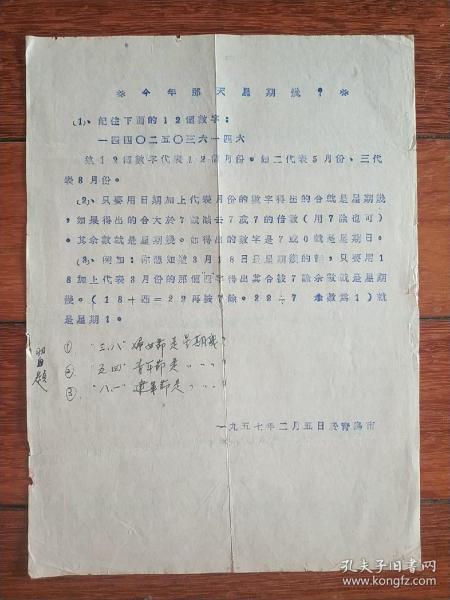 ※ 今年那天星期幾？ ※
(1)、記住下面的12個数字：
一四四〇二五〇三六一四六
這12個數字代表12個月份。如二代表5月份、三代
表8月份。
(2)、只要用日期加上代表月份的數字得出的合就是星期幾
，如果得出的合大於7就減去7或7的倍數(用7除也可)
。其余數就是星期幾。如得出的數字是7或0就是星期日。
(3)、例如：你想知道3月18日是星期幾的話，只要用1
8加上代表3月份的那個四字得出其合被7除余數就是星期
幾。(18+四=22再被7除。22÷7 余數為1)就
是星期1。
習題
① "三.八"婦女節是星期幾？
② "五四"青年節是〃〃〃？
③ "八一"建軍節是〃〃〃？
一九五七年二月五日於青島市
孔夫子旧书网
www.kongfz.com